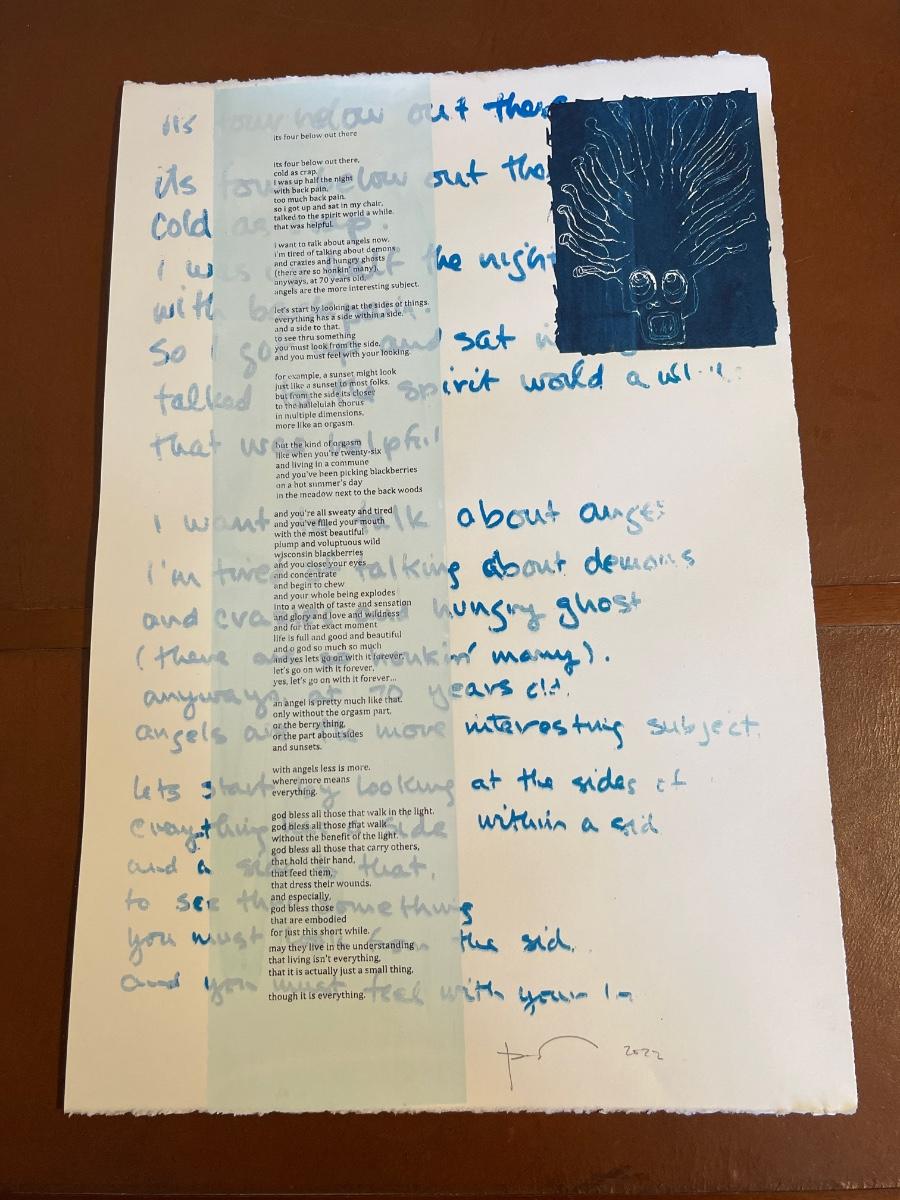 its four below out there
its four below out there,
cold as crap.
i was up half the night
with back pain,
too much back pain.
so i got up and sat in my chair,
talked to the spirit world a while.
that was helpful.
i want to talk about angels now.
i'm tired of talking about demons
and crazies and hungry ghosts
(there are so honkin' many).
anyways, at 70 years old,
angels are the more interesting subject.
let's start by looking at the sides of things.
everything has a side within a side.
and a side to that.
to see thru something
you must look from the side.
and you must feel with your looking.
for example, a sunset might look
just like a sunset to most folks.
but from the side its closer
to the halleluiah chorus
in multiple dimensions.
more like an orgasm.
but the kind of orgasm
like when you're twenty-six
and living in a commune
and you've been picking blackberries
on a hot summer's day
in the meadow next to the back woods
and you're all sweaty and tired
and you've filled your mouth
with the most beautiful
plump and voluptuous wild
wisconsin blackberries
and you close your eyes
and concentrate
and begin to chew
and your whole being explodes
into a wealth of taste and sensation
and glory and love and wildness
and for that exact moment
life is full and good and beautiful
and o god so much so much
and yes lets go on with it forever,
let's go on with it forever,
yes, let's go on with it forever...
an angel is pretty much like that.
only without the orgasm part,
or the berry thing,
or the part about sides
and sunsets.
with angels less is more.
where more means
everything.
god bless all those that walk in the light.
god bless all those that walk
without the benefit of the light.
god bless all those that carry others,
that hold their hand,
that feed them,
that dress their wounds.
and especially,
god bless those
that are embodied
for just this short while.
may they live in the understanding
that living isn't everything,
that it is actually just a small thing,
though it is everything.
its four below out there
its four below out the
cold as crap.
i was half the night
with back pain.
So i got up and sat in
talked to the spirit world a whil
that was helpful
i want to talk about angels
i'm tired of talking about demons
and crazies and hungry ghost
(there are so honkin' many).
anyways, at 70 years old.
angels are the more interesting subject.
lets start by looking at the sides of
everything has a side within a sid
and a side to that.
to see thru something
you must look from the sid.
and you must feel with your lo
2022